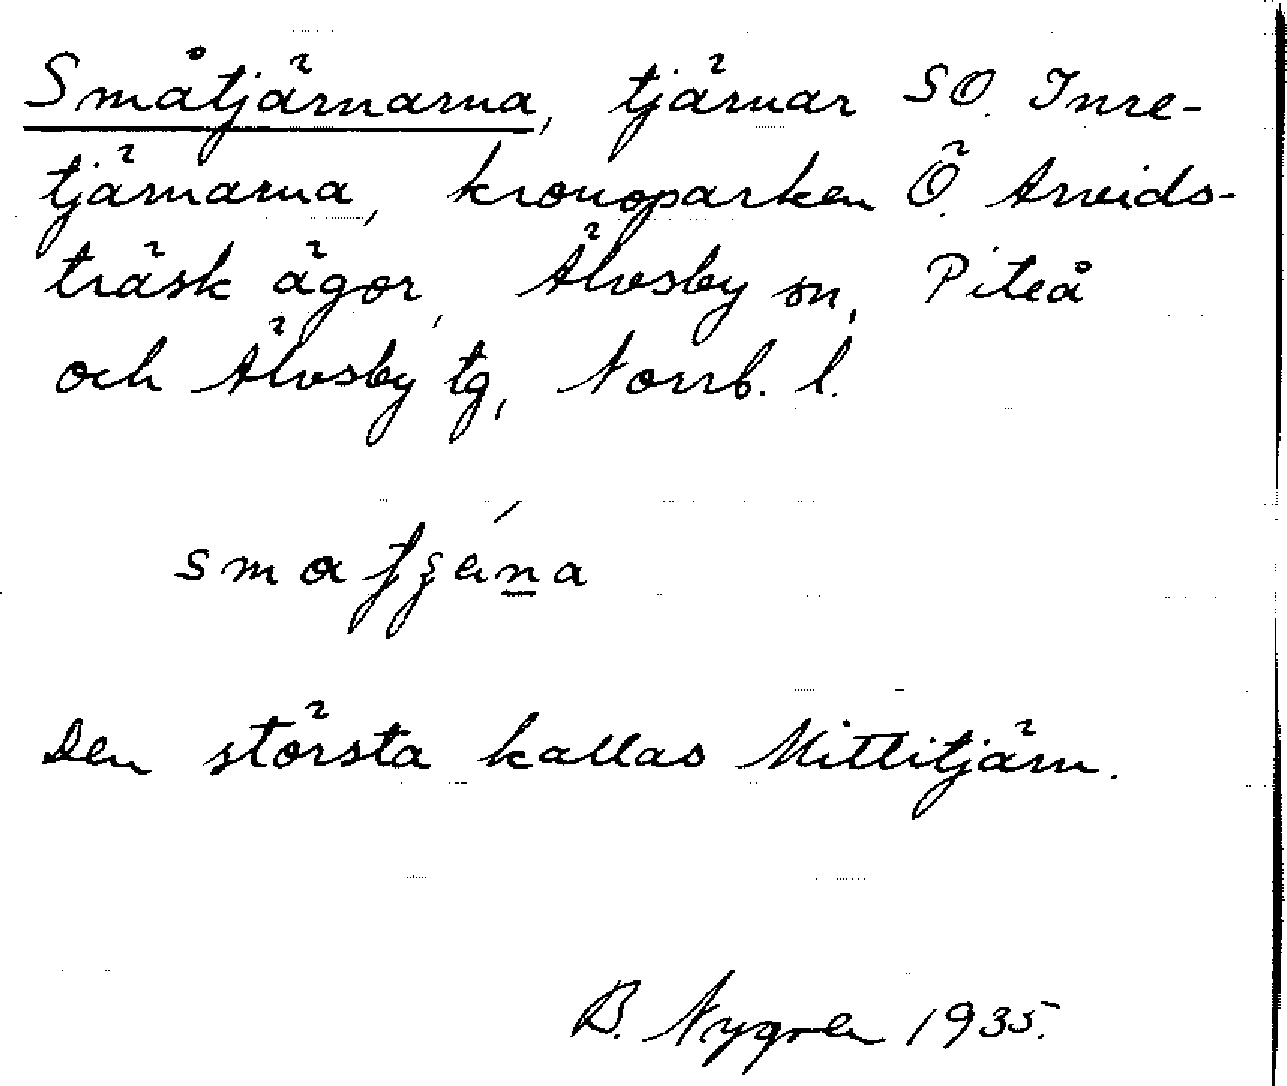 Småtjärnarna, tjärnar SO. Inre-
tjärnarna, kronoparken Ö. Arvids-
träsk ägor, Älvsby sn, Piteå
och Älvsby tg, Norrb. l.
Den största kallas Mittitjärn.
B. Nygren 1935.